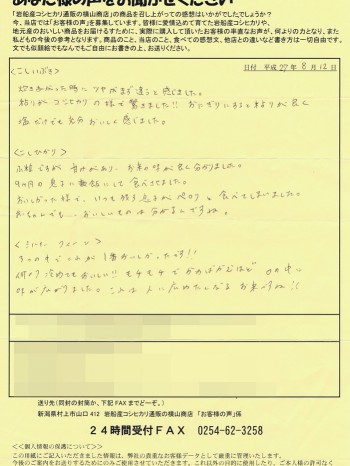 あなた様の声をお聞かせください
「岩船産コシヒカリ通販の横山商店」の商品を召し上がっての感想はいかがでしたでしょうか？
今、当店では「お客様の声」を募集しています。皆様に愛情込めて育てた岩船産コシヒカリや、
地元産のおいしい商品をお届けするために、実際に購入して頂いたお客様の率直なお声が、何よりの力となり、また
私どもの今後の参考となります。商品のこと、当店のこと、食べての感想文、他店との違いなど書き方は一切自由です。
文でも似顔絵でもなんでもご自由にお書きの上、お送りください。
日付 平成 27年 8月 12日
<こしいぶき>
炊きあがった時に ツヤがまず違うと感じました。
粘りが コシヒカリ の様で驚きました!! おにぎりにすると粘りが良く
塩だけでも充分 おいしく感じました。
<こしひかり>
小粒ですが 甘みがあり、お米の味が良く分かりました。
9ヶ月の息子に軟飯にして食べさせました。
おいしかった様で、いつも残す息子がペロリと食べてしまいました。
赤ちゃんでも、おいしいものは分かるんですね。
<ミルキークイーン>
3つの中でこれが1番おいしかったです!!
何より冷めてもおいしい!! モチモチでかめばかむほど 口の中に
味が広がりました。 人に広めたくなるお米ですね!!
送り先（同封の封筒か、下記FAXまでどーぞ。）
新潟県村上市山口 412 岩船産コシヒカリ通販の横山商店 「お客様の声」係
24時間受付FAX 0254-62-3258
<<個人情報の保護について>>
この用紙にご記入いただきました情報は、弊社の貴重なお客様データとして厳重に管理いたします。
今後のご案内をお送りするためにのみご使用させていただきます。これ以外の目的に使用したり、ご本人様の許可なく